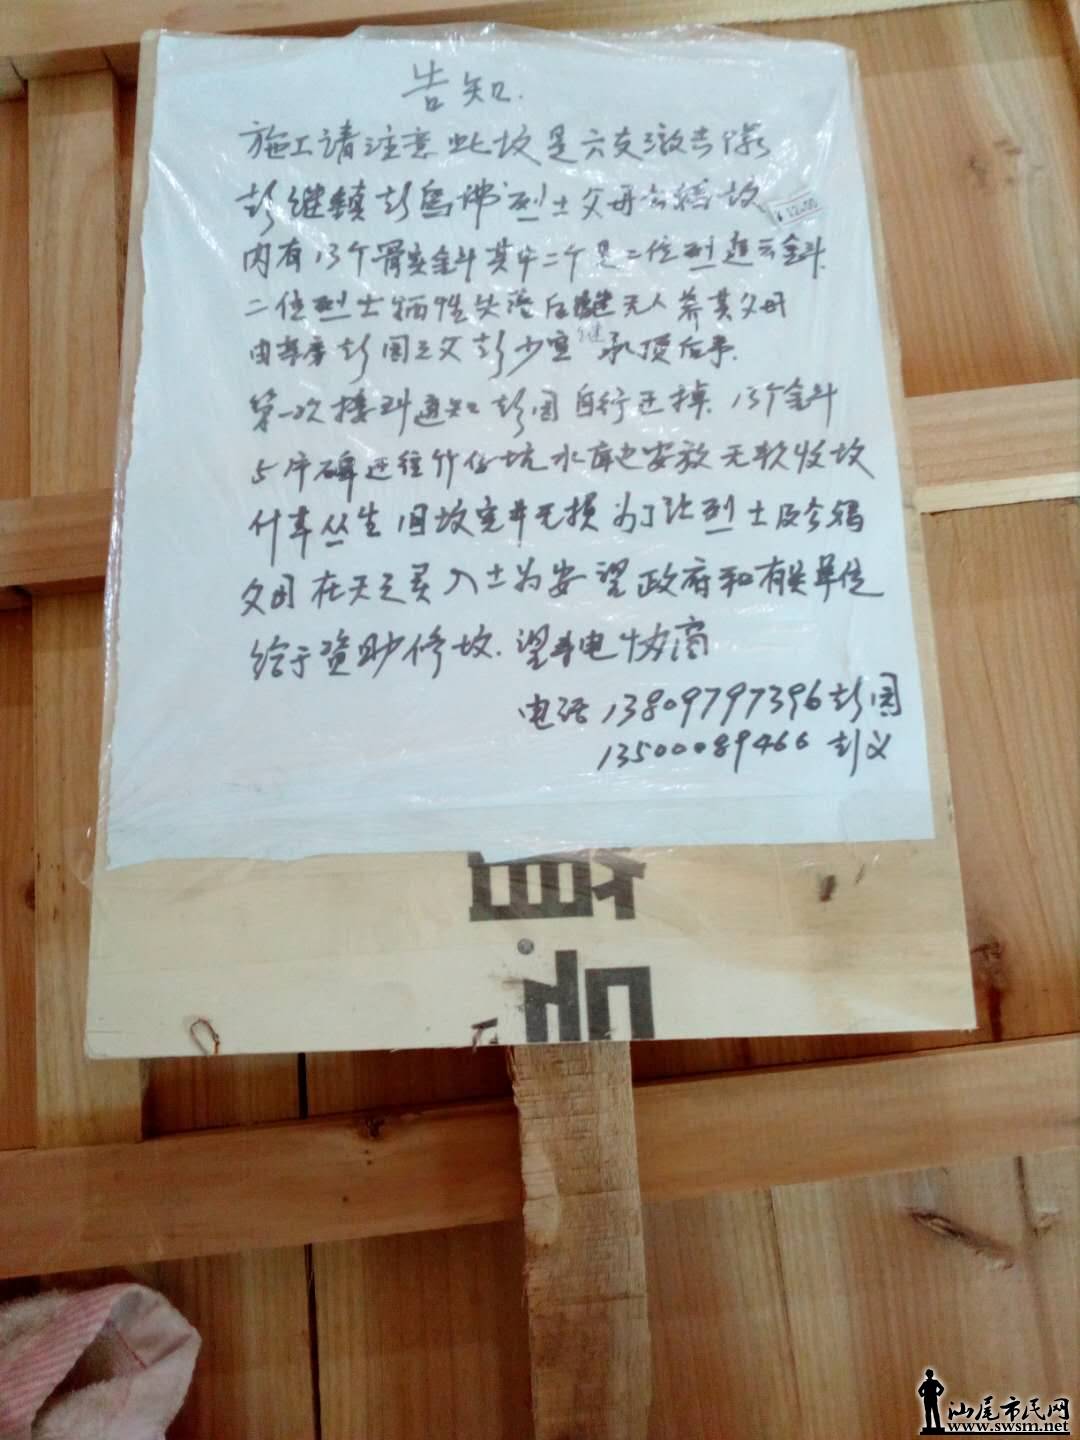 告知.
施工请注意此坟是六友
彭继镇彭乌佛烈士父母合坟
¥12.00
内有13个骨 金斗其中二个是二位烈 金斗.
二位烈士牺牲 后继无人 其父母
继
由 彭园之父彭少宣承顶后事.
第一次接到通知彭园自行迁掉.13个金斗
5片碑迁往竹仔坑水库 安放无 收坟
什草丛生旧坟完 无损为了让烈士及
父母在天之灵入土为安望政府和有关单位
给于资助修坟.望来电协商
电话13809797396彭园
13500089466彭义
汕尾市民网
www.swsm.net